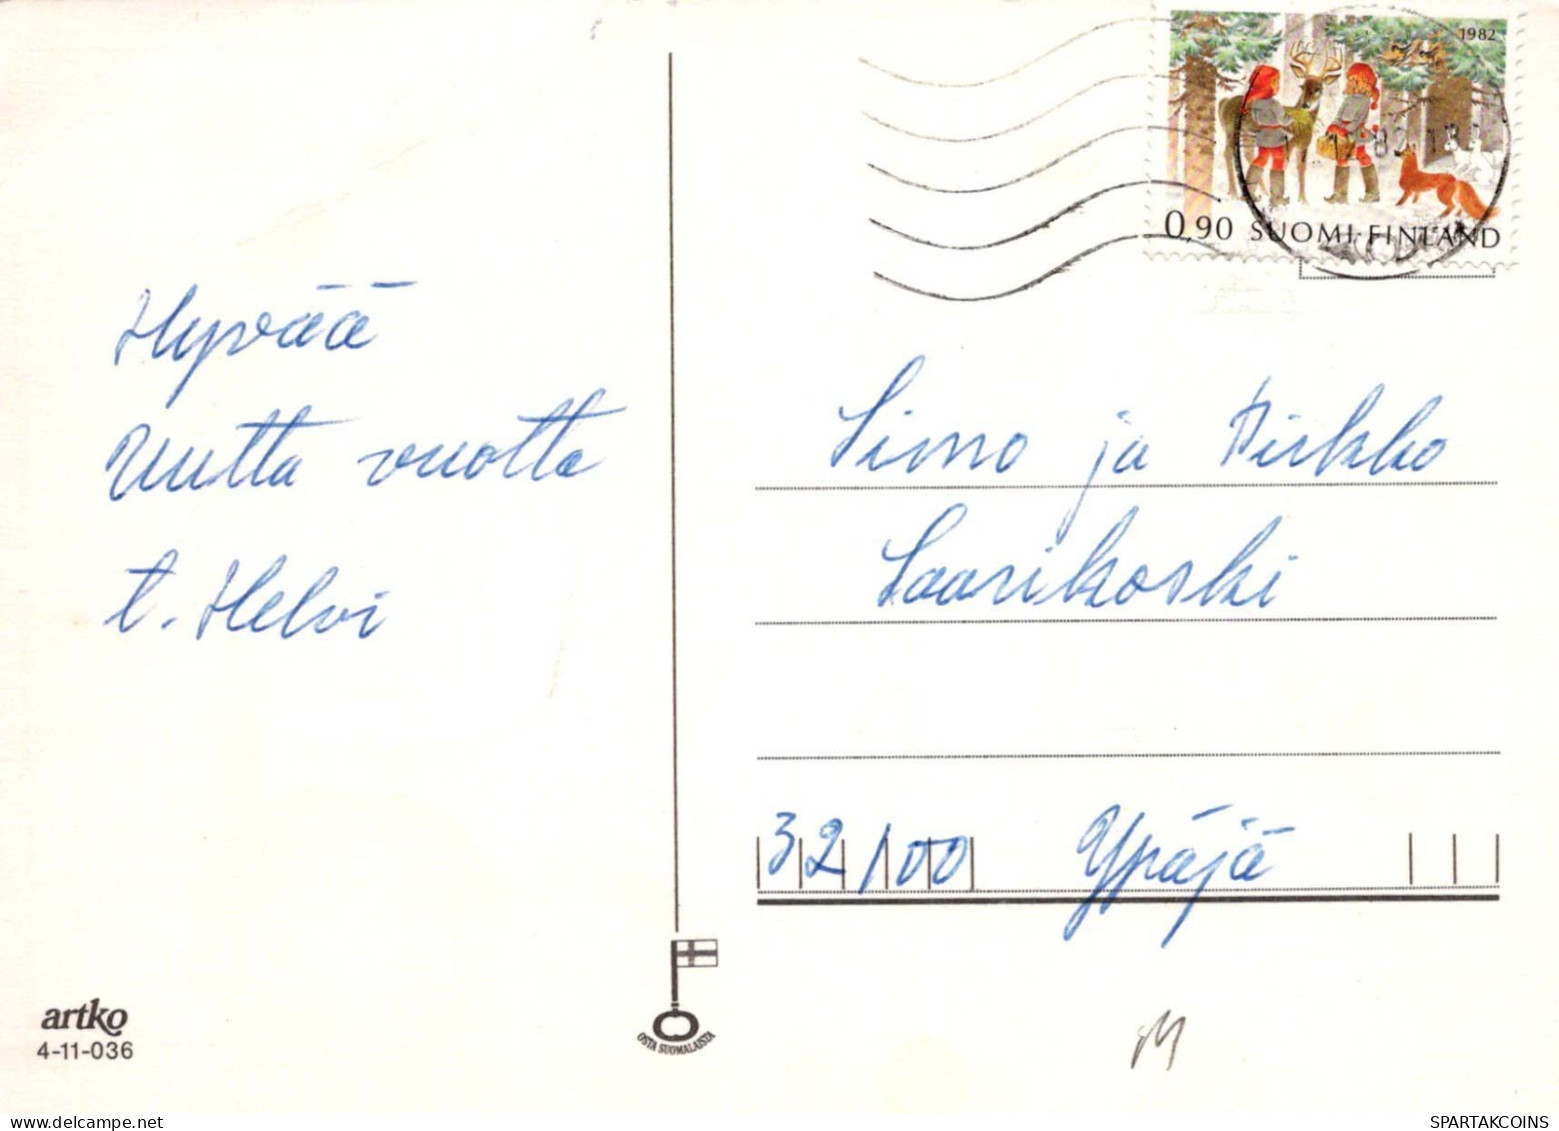 Hyvää
Uutta vuotta
t. Helvi
artko
4-11-036
OSTA SUOMALAISTA
1982
12.82.18
0,90 SUOMI-FINLAND
Simo ja Pirkko
Saarikoski
32100 Ypäjä
M
SPARTAKCOINS